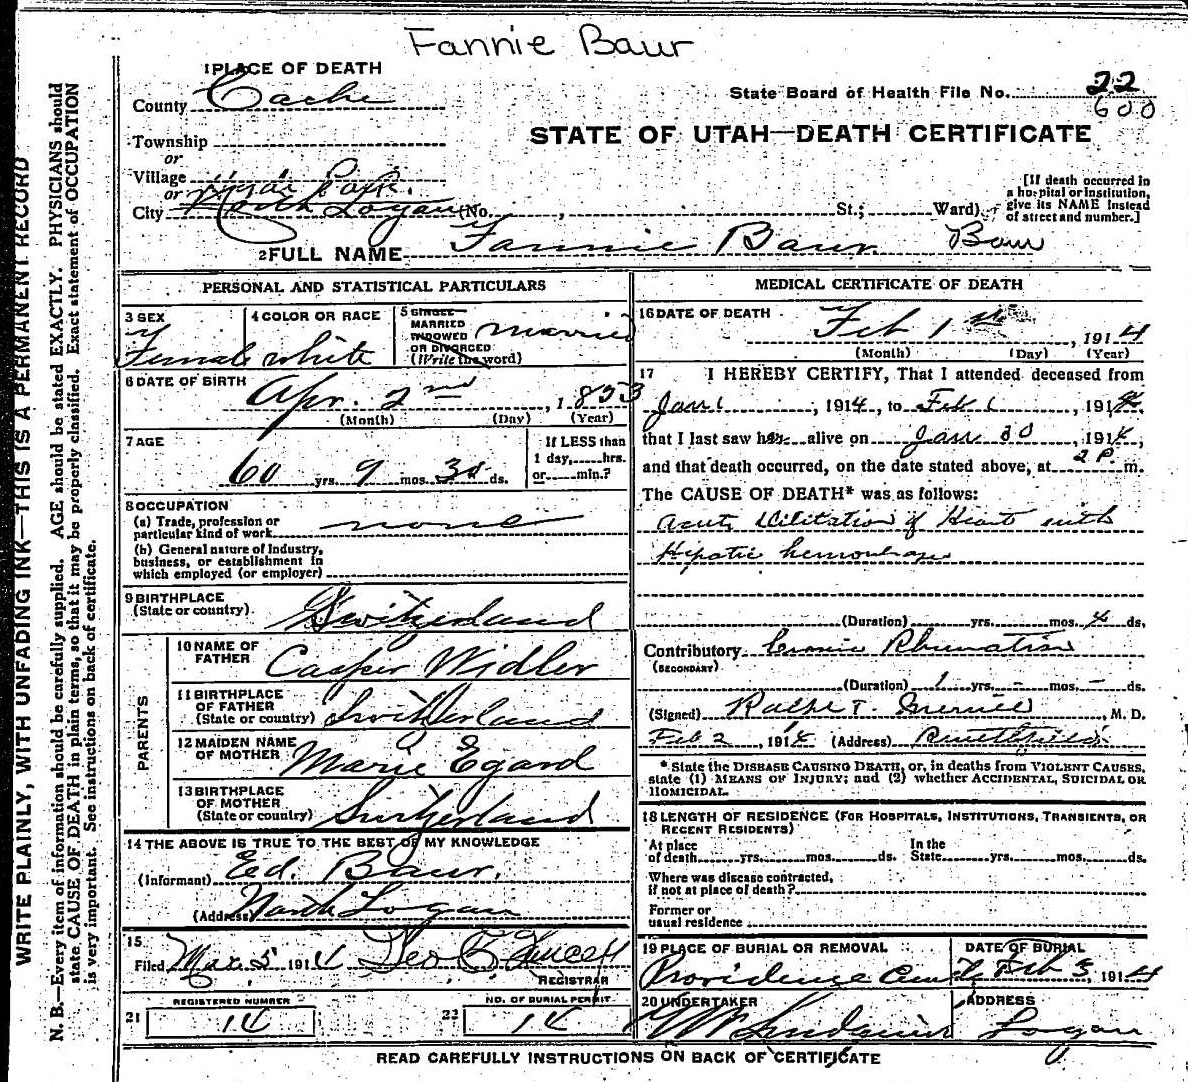 Fannie Baur
1 PLACE OF DEATH
County Cache
State Board of Health File No. 22
600
STATE OF UTAH—DEATH CERTIFICATE
Township
or
Village
or
City North Logan (No. , St.; Ward)
[If death occurred in a hospital or institution, give its NAME instead of street and number.]
2 FULL NAME Fannie Baur. Baur
PERSONAL AND STATISTICAL PARTICULARS
3 SEX Female
4 COLOR OR RACE white
5 SINGLE MARRIED WIDOWED OR DIVORCED (Write the word) married
6 DATE OF BIRTH Apr. 2nd, 1853
(Month) (Day) (Year)
7 AGE 60 yrs. 9 mos. 30 ds.
If LESS than 1 day, hrs. or min.?
8 OCCUPATION
(a) Trade, profession or particular kind of work none
(b) General nature of Industry, business, or establishment in which employed (or employer)
9 BIRTHPLACE (State or country) Switzerland
PARENTS
10 NAME OF FATHER Casper Widler
11 BIRTHPLACE OF FATHER (State or country) Switzerland
12 MAIDEN NAME OF MOTHER Marie Egard
13 BIRTHPLACE OF MOTHER (State or country) Switzerland
14 THE ABOVE IS TRUE TO THE BEST OF MY KNOWLEDGE
(Informant) Ed. Baur.
(Address) North Logan
15 Filed Mar 5 1914 Geo
REGISTRAR
REGISTERED NUMBER
21 14
NO. OF BURIAL PERMIT
22 14
MEDICAL CERTIFICATE OF DEATH
16 DATE OF DEATH Feb 1st, 1914
(Month) (Day) (Year)
17 I HEREBY CERTIFY, That I attended deceased from
Jan 1, 1914, to Feb 1, 1914.
that I last saw her alive on Jan 30, 1914,
and that death occurred, on the date stated above, at 2 P. m.
The CAUSE OF DEATH* was as follows:
Acute Dilitation of Heart with
Hipatic hemorrhage
(Duration) yrs. mos. 4 ds.
Contributory Cronic Rhumatism
(SECONDARY)
(Duration) 1 yrs. - mos. - ds.
(Signed) Ralph T. Merrill, M. D.
Feb 2, 1914 (Address)
* State the DISEASE CAUSING DEATH, or, in deaths from VIOLENT CAUSES, state (1) MEANS OF INJURY; and (2) whether ACCIDENTAL, SUICIDAL OR HOMICIDAL.
18 LENGTH OF RESIDENCE (FOR HOSPITALS, INSTITUTIONS, TRANSIENTS, OR RECENT RESIDENTS)
At place of death yrs. mos. ds. In the State yrs. mos. ds.
Where was disease contracted, if not at place of death?
Former or usual residence
19 PLACE OF BURIAL OR REMOVAL Providence
DATE OF BURIAL Feb 5, 1914
20 UNDERTAKER
ADDRESS Logan
READ CAREFULLY INSTRUCTIONS ON BACK OF CERTIFICATE
WRITE PLAINLY, WITH UNFADING INK—THIS IS A PERMANENT RECORD
N. B.—Every item of information should be carefully supplied. AGE should be stated EXACTLY. PHYSICIANS should
state CAUSE OF DEATH in plain terms, so that it may be properly classified. Exact statement of OCCUPATION
is very important. See instructions on back of certificate.